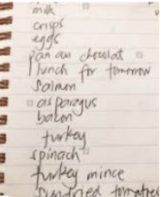 milk
crisps
eggs
pan au chocolat
lunch for tomorrow
Salmon
asparagus
bacon
turkey
spinach
turkey mince
Sundried tomatoes